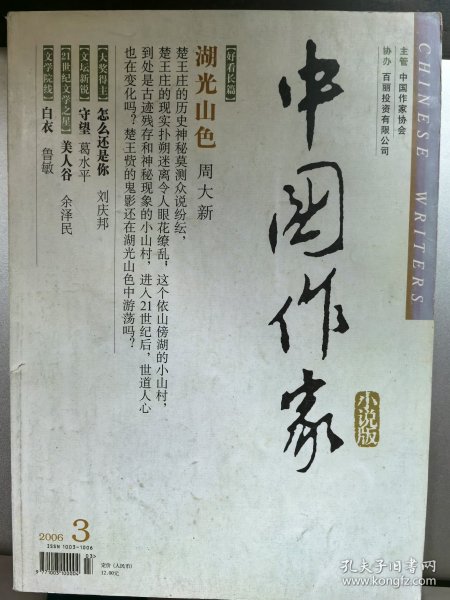 主管 中国作家协会
协办 百丽投资有限公司
CHINESE WRITERS
中国作家
小说版
【好看长篇】
湖光山色 周大新
楚王庄的历史神秘莫测众说纷纭，
楚王庄的现实扑朔迷离令人眼花缭乱，这个依山傍湖的小山村，
到处是古迹残存和神秘现象的小山村，进入21世纪后，世道人心
也在变化吗？楚王赀的鬼影还在湖光山色中游荡吗？
【大奖得主】 怎么还是你 刘庆邦
【文坛新锐】 守望 葛水平
【21世纪文学之星】 美人谷 余泽民
【文学院线】 白衣 鲁敏
2006 3
ISSN 1003-1006
03>
9 771003 100004
定价（人民币）
12.00元
孔夫子旧书网
book.kongfz.com